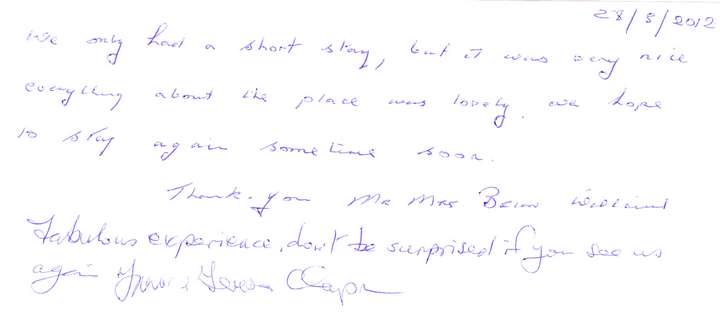 28/8/2012
We only had a short stay, but it was very nice
everything about the place was lovely. we hope
to stay again sometime soon.
Thank.you Mr Mrs Brian Williams
Fabulous experience, don't be surprised if you see us
again Teresa